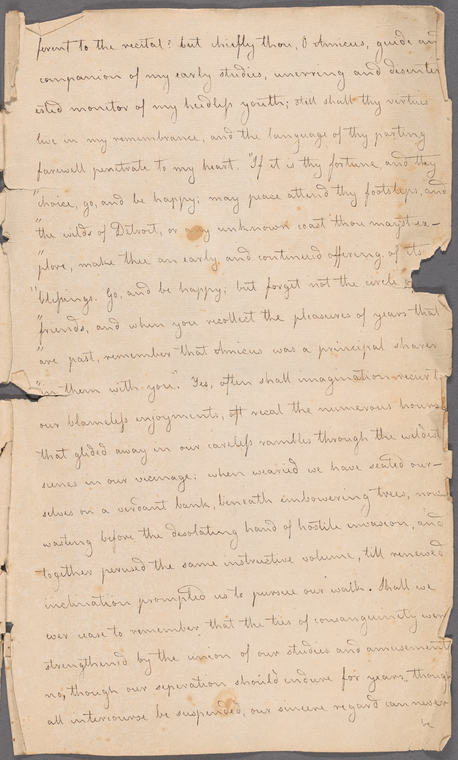 ferent to the recital? but chiefly thou, O Amicus, guide and
companion of my early studies, unerring and disinter
ested monitor of my heedless youth; still shall thy virtues
live in my remembrance, and the language of thy parting
farewell penetrate to my heart. "If it is thy fortune, and thy
"choice, go, and be happy; may peace attend thy footsteps, and
"the wilds of Detroit, or any unknown coast thou mayst ex-
"plore, make thee an early and continued offering of its
"blessings. Go, and be happy; but forget not the circle
"friends, and when you recollect the pleasures of years that
"are past, remember that Amicus was a principal sharer
"in them with you". Yes, often shall imagination recur to
our blameless enjoyments, oft recal the numerous hours
that glided away in our careless rambles through the wildest
scenes in our vicinage: when wearied we have seated our-
selves on a verdant bank, beneath embowering trees, now
wasting before the desolating hand of hostile invasion, and
together perused the same instructive volume, till renewed
inclination prompted us to pursue our walk. Shall we
ever cease to remember that the ties of consanguinity were
strengthened by the union of our studies and amusements
no, though our seperation should endure for years, though
all intercourse be suspended, our sincere regard can never
be